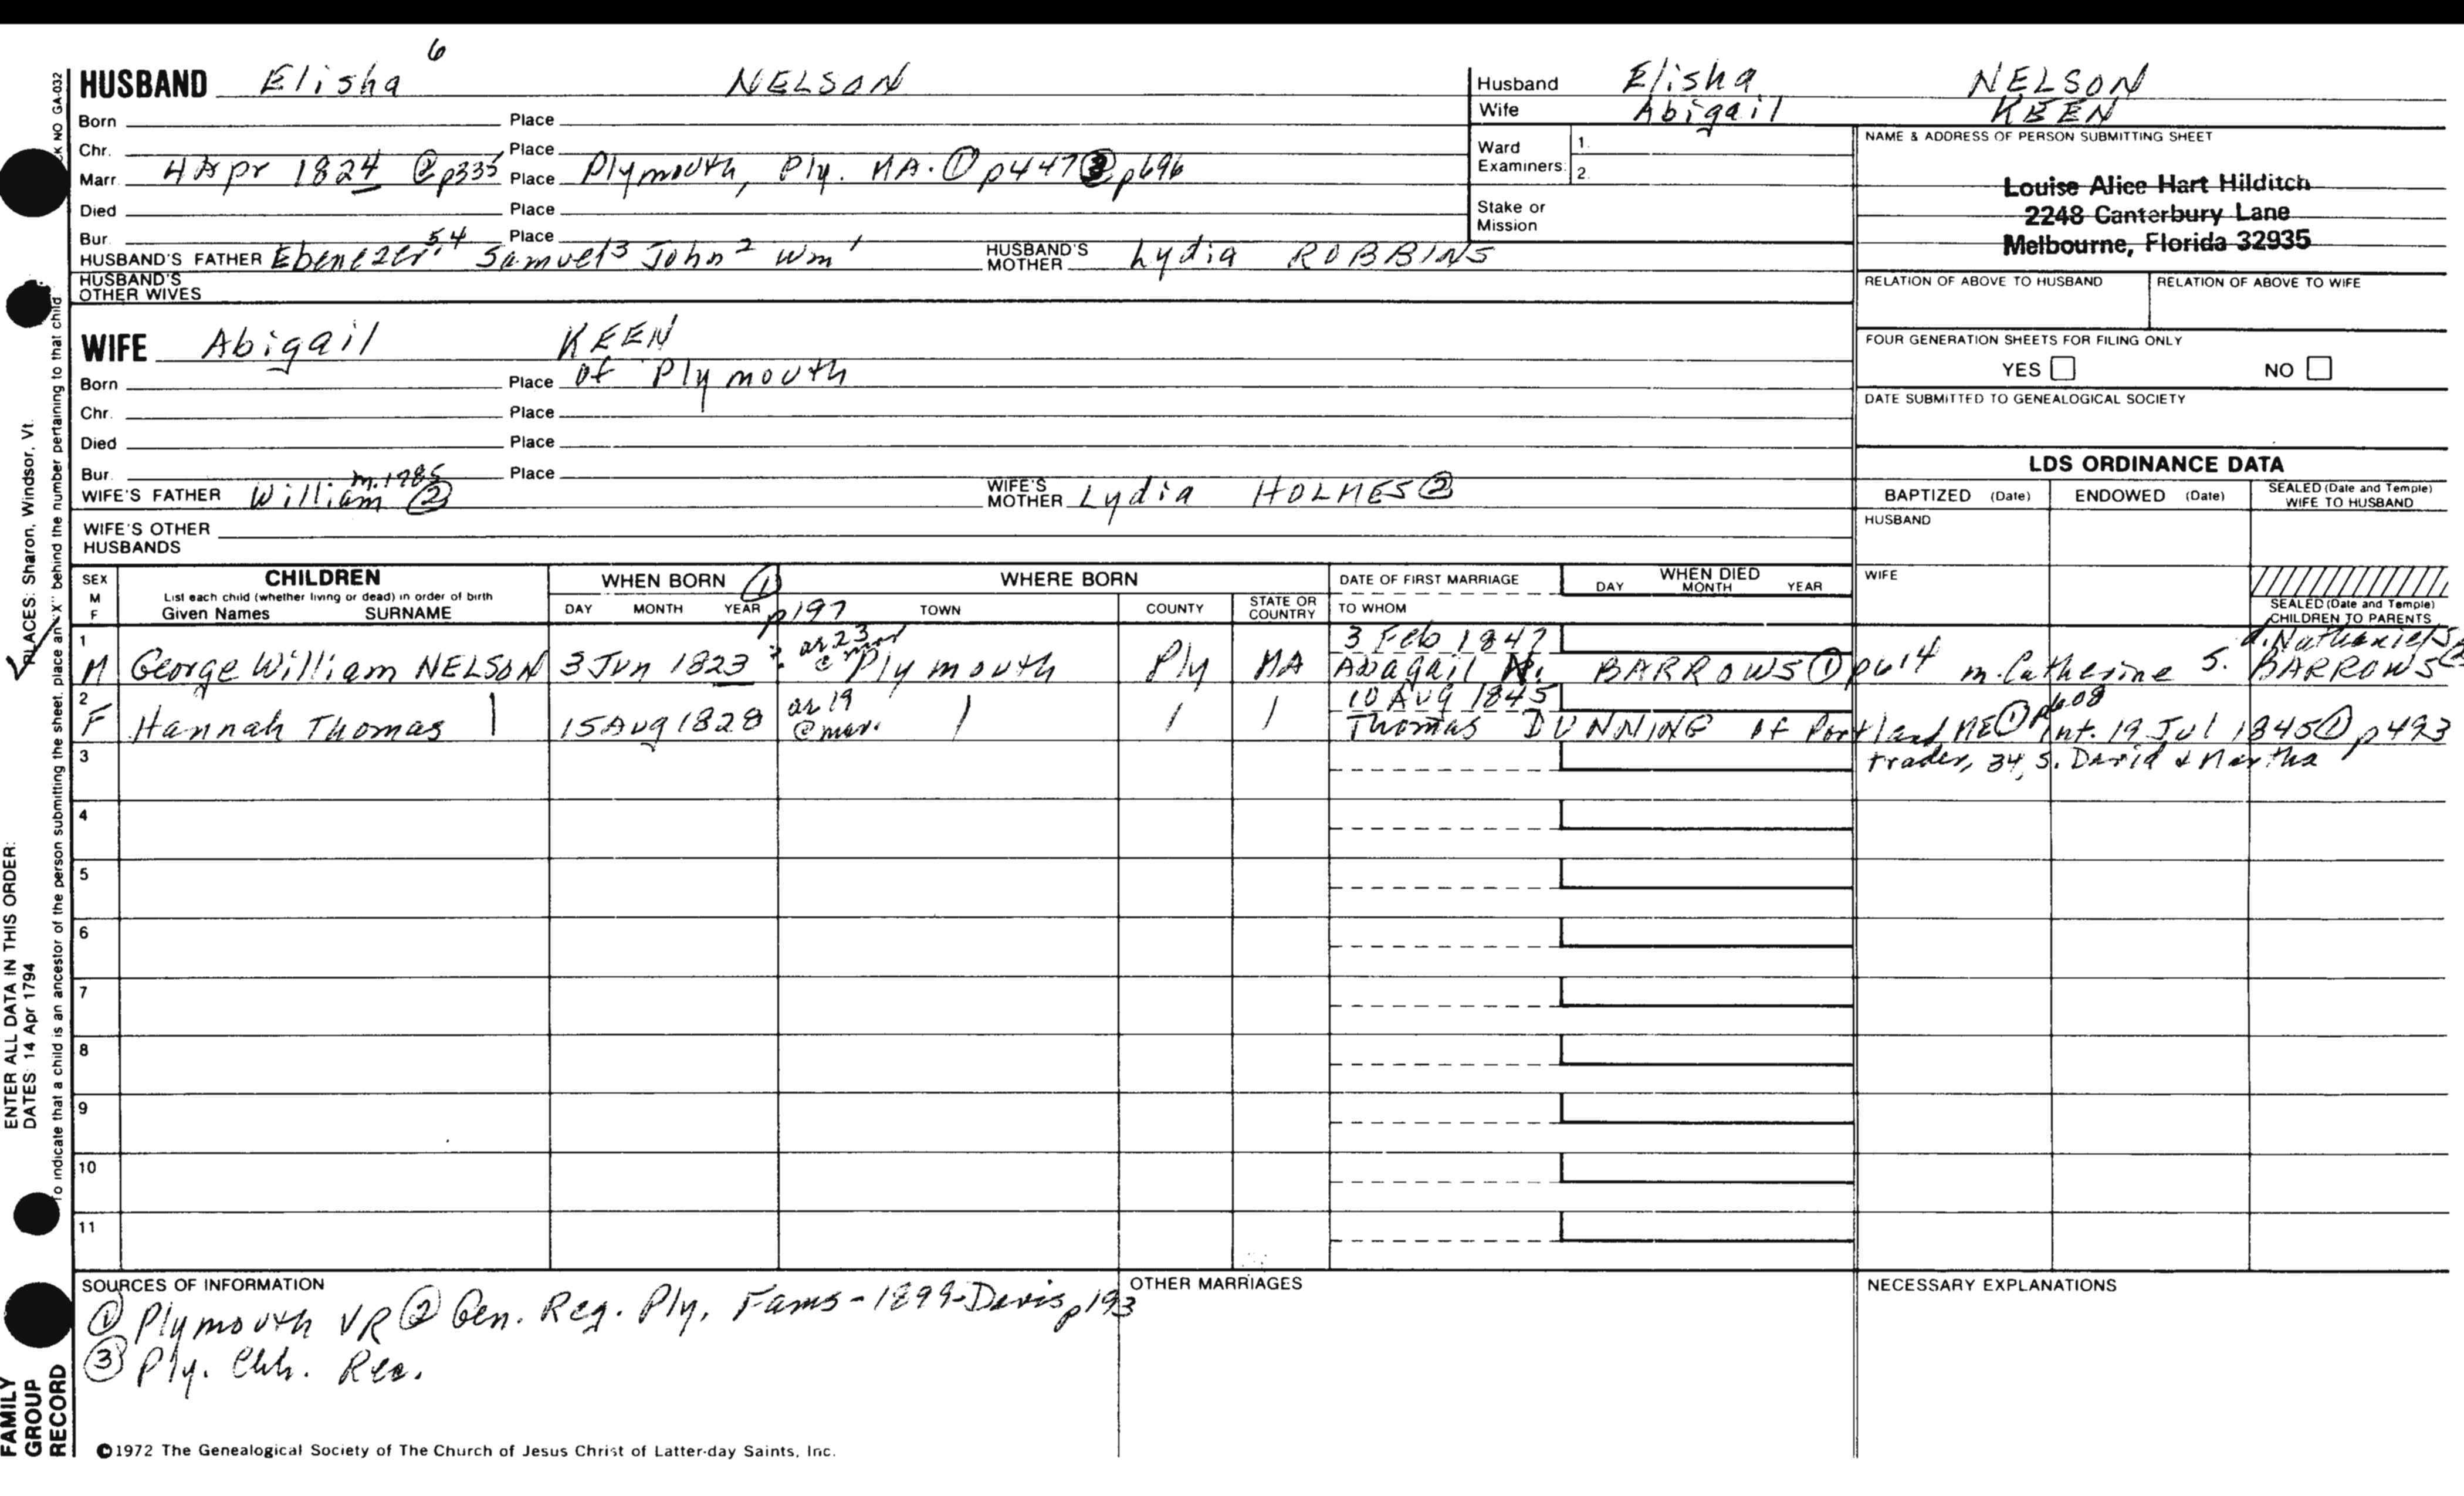 HUSBAND Elisha 6 NELSON
Born Place
Chr. Place
Marr. 4 Apr 1824 ② p335 Place Plymouth, Ply. MA. ① p447 ③ p696
Died Place
Bur. Place
HUSBAND'S FATHER Ebenezer 54 Samuel 3 John 2 Wm 1 HUSBAND'S MOTHER Lydia ROBBINS
HUSBAND'S OTHER WIVES
WIFE Abigail KEEN
Born Place of Plymouth
Chr. Place
Died Place
Bur. Place
WIFE'S FATHER William ② m. 1785 WIFE'S MOTHER Lydia HOLMES ②
WIFE'S OTHER HUSBANDS
Husband Elisha NELSON
Wife Abigail KEEN
Ward Examiners: 1. 2.
Stake or Mission
NAME & ADDRESS OF PERSON SUBMITTING SHEET
Louise Alice Hart Hilditch
2248 Canterbury Lane
Melbourne, Florida 32935
RELATION OF ABOVE TO HUSBAND RELATION OF ABOVE TO WIFE
FOUR GENERATION SHEETS FOR FILING ONLY
YES NO
DATE SUBMITTED TO GENEALOGICAL SOCIETY
LDS ORDINANCE DATA
BAPTIZED (Date) ENDOWED (Date) SEALED (Date and Temple) WIFE TO HUSBAND
HUSBAND
WIFE
SEALED (Date and Temple) CHILDREN TO PARENTS
SEX M F CHILDREN WHEN BORN ① p197 WHERE BORN DATE OF FIRST MARRIAGE WHEN DIED
List each child (whether living or dead) in order of birth
Given Names SURNAME DAY MONTH YEAR TOWN COUNTY STATE OR COUNTRY TO WHOM DAY MONTH YEAR
1 M George William NELSON 3 Jun 1823 ? ae 23 @ mar Plymouth Ply MA 3 Feb 1847
Abagail N. BARROWS ① p614 m. Catherine S. BARROWS ② d. Nathaniel
2 F Hannah Thomas 15 Aug 1828 ae 19 @ mar. 10 Aug 1845
Thomas DUNNING of Portland ME ① p608 Int. 19 Jul 1845 ① p493
trader, 34, s. David & Martha
3
4
5
6
7
8
9
10
11
SOURCES OF INFORMATION
① Plymouth VR ② Gen. Reg. Ply. Fams - 1899 - Davis p193
③ Ply. Chh. Rec.
OTHER MARRIAGES
NECESSARY EXPLANATIONS
©1972 The Genealogical Society of The Church of Jesus Christ of Latter-day Saints, Inc.
FAMILY GROUP RECORD
ENTER ALL DATA IN THIS ORDER:
DATES: 14 Apr 1794
PLACES: Sharon, Windsor, Vt.
To indicate that a child is an ancestor of the person submitting the sheet, place an "X" behind the number pertaining to that child
CK NO GA-032